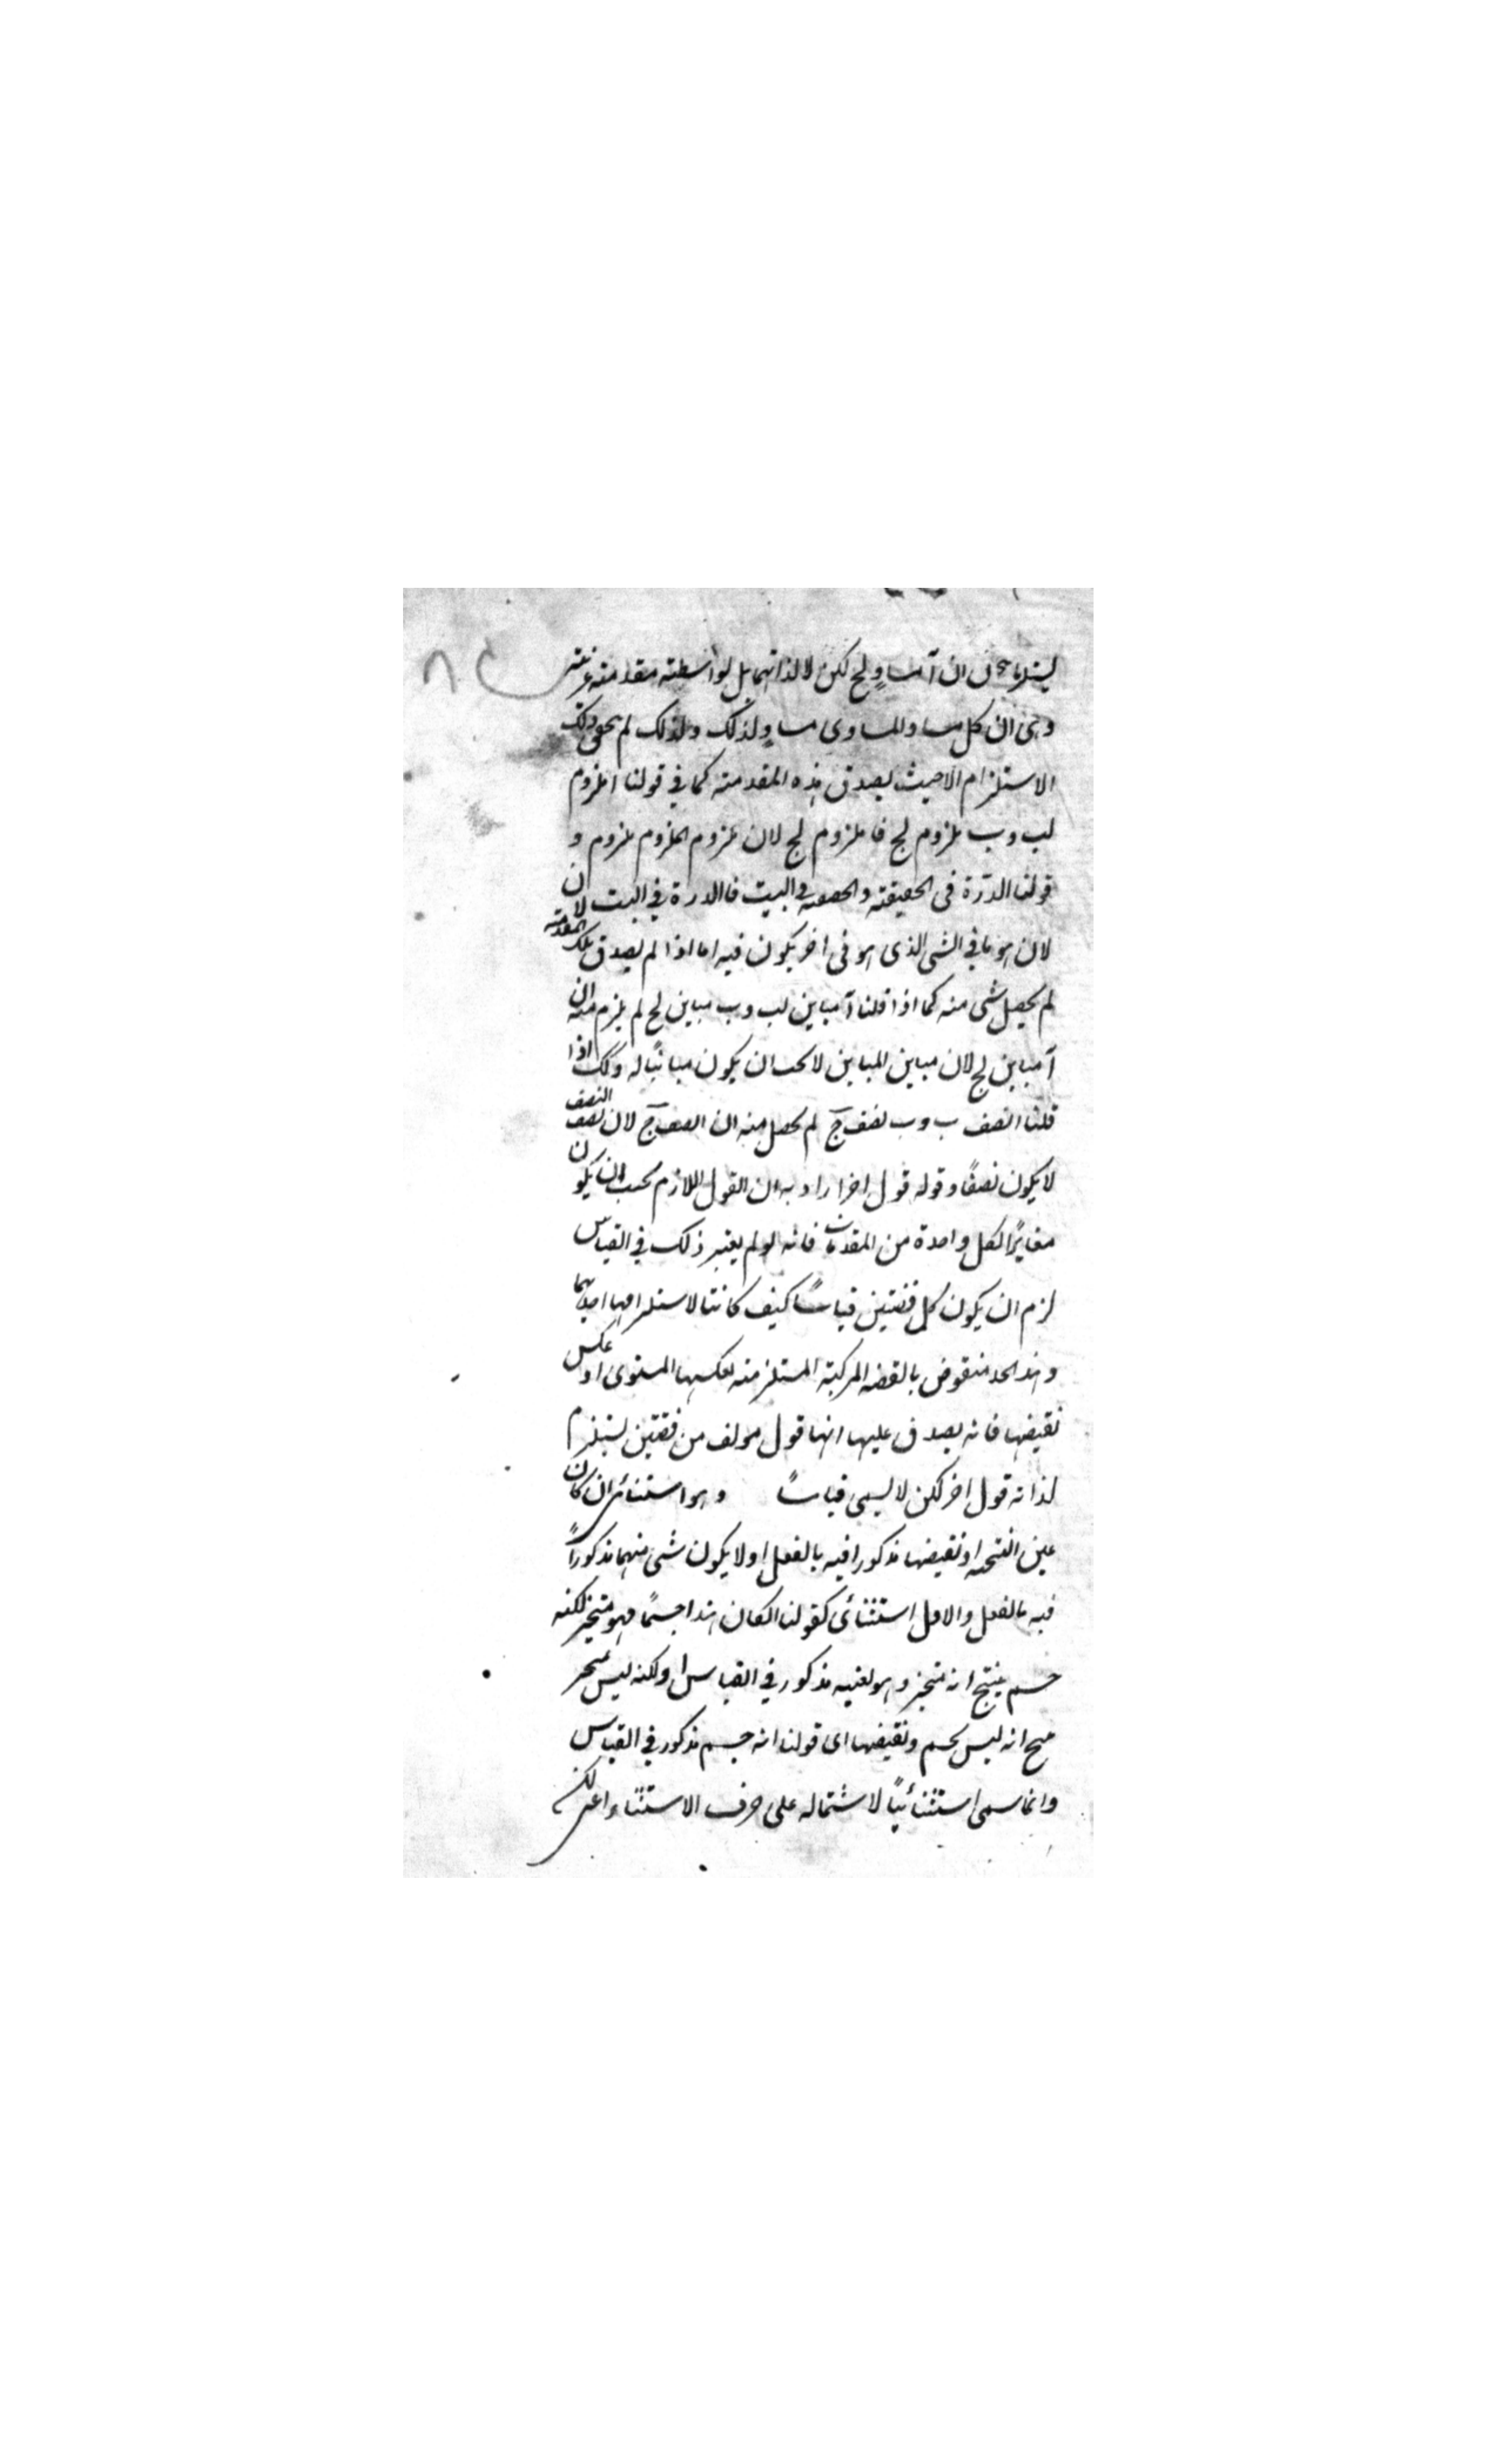 ان آ مساوٍ لج لكن لا لذاتهما بل لواسطة مقدمة غريبة
وهى ان كل مساو للمساوى مساوٍ لذلك ولذلك لم يتحقق ذلك
الاستلزام الا حيث يصدق هذه المقدمة كما في قولنا ا ملزوم
لب وب ملزوم لج فا ملزوم لج لان ملزوم الملزوم ملزوم و
قولنا الدرّة فى الحقيقة والحقة في البيت فالدرة في البيت لان
لان هو ما في الشى الذى هو فى اخر يكون فيه اما اذا لم يصدق تلك المقدمة
لم يحصل شى منه كما اذا قلنا آ مباين لب وب مباين لج لم يلزم منه ان
آ مباين لج لان مباين المباين لا يجب ان يكون مباينًا له وكك اذا
قلنا ا نصف ب وب نصف ج لم يحصل منه ان ا نصف ج لان نصف النصف
لا يكون نصفًا وقوله قول اخر اراد به ان القول اللازم يجب ان يكون
مغايرًا لكل واحدة من المقدمات فانه لو لم يعتبر ذلك في القياس
لزم ان يكون كل قضيتين قياسًا كيف كانتا لاستلزامهما احديهما
وهذا الحد منقوض بالقضية المركبة المستلزمة لعكسها المستوى او عكس
نقيضها فانه يصدق عليها انها قول مولف من قضيتين يستلزم
لذاته قول اخر لكن لا يسمى قياسًا وهو استثنائى ان كان
عين النتيجة او نقيضها مذكورا فيه بالفعل او لا يكون شى منهما مذكوراً
فيه بالفعل والاول استثنائى كقولنا ان كان هذا جسمًا فهو متحيز لكنه
جسم ينتج انه متحيز وهو بعينه مذكور في القياس او لكنه ليس بمتحيز
ينتج انه ليس بجسم ونقيضها اى قولنا انه جسم مذكور في القياس
وانما سمى استثنائيًا لاشتماله على حرف الاستثناء اعنى لكن